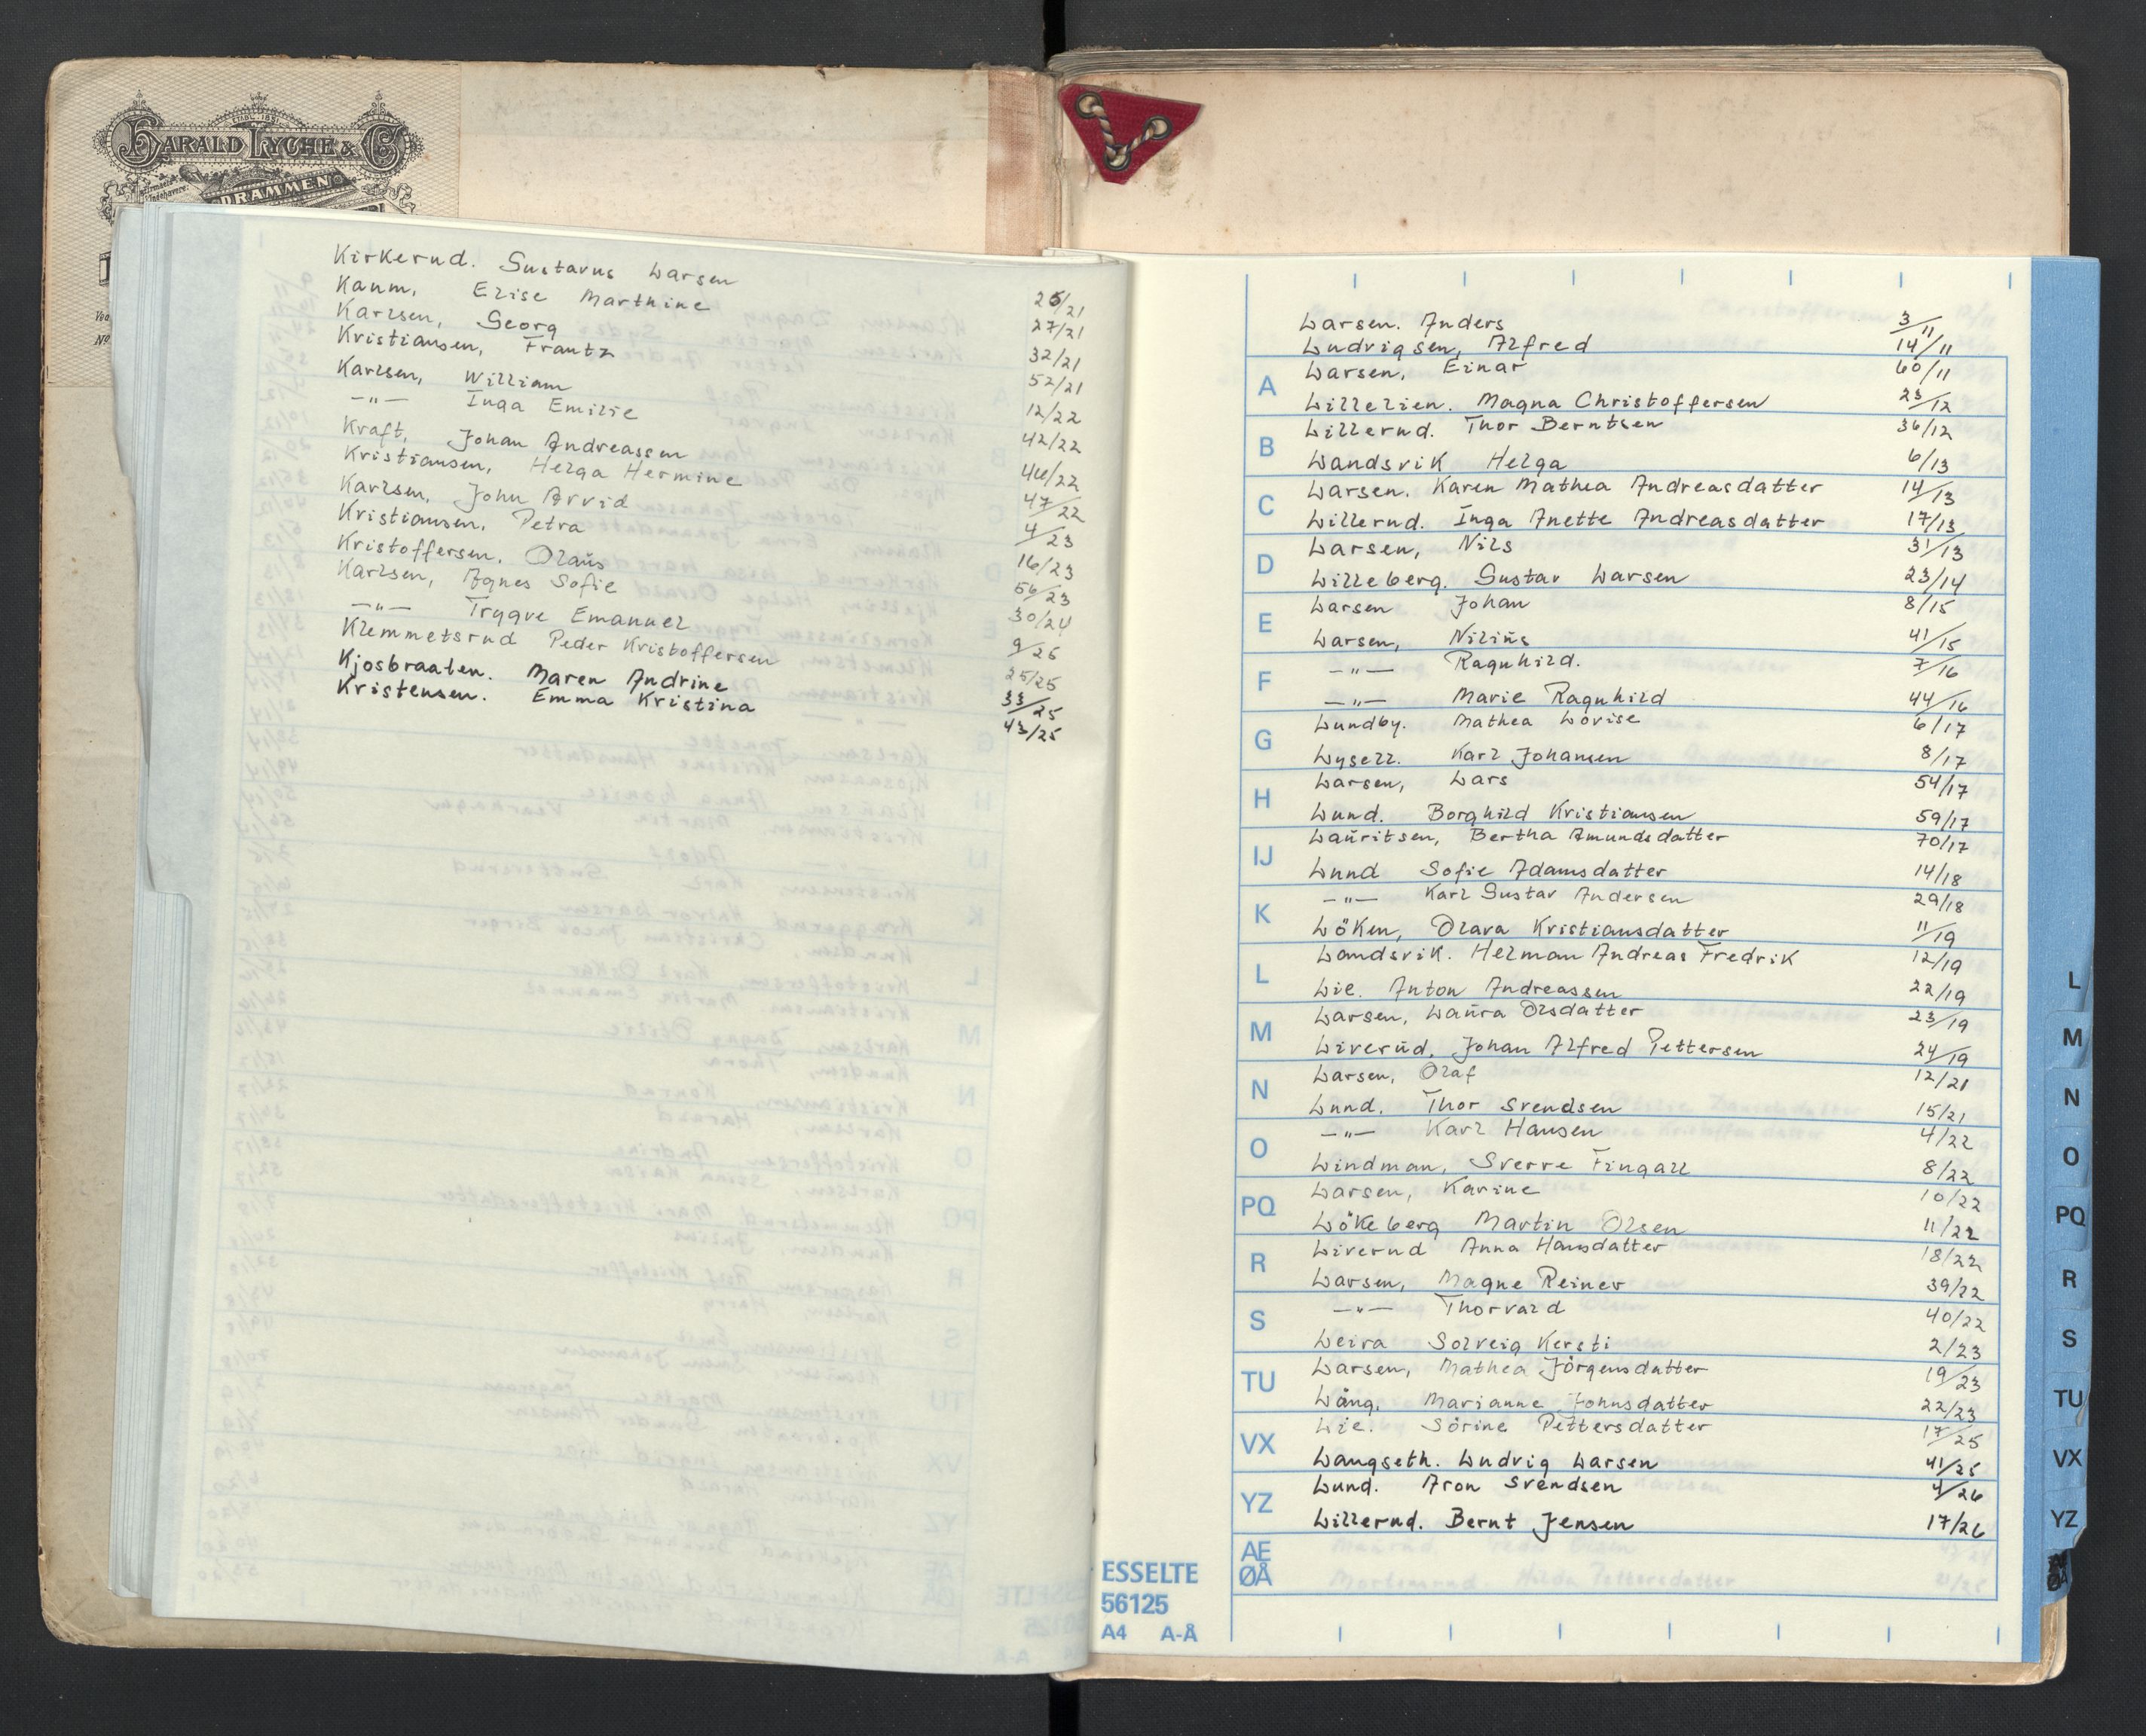 ETABL. 1851.
HARALD LYCHE & Co
DRAMMEN
Kirkerud. Gustavus Larsen 25/21
Kaum, Elise Marthine 27/21
Karlsen, Georg 32/21
Kristiansen, Frantz 52/21
Karlsen, William 12/22
—"— Inga Emilie 42/22
Kraft, Johan Andreassen 44/22
Kristiansen, Helga Hermine 47/22
Karlsen, John Arvid 4/23
Kristiansen, Petra 16/23
Kristoffersen, Olaus 56/23
Karlsen, Agnes Sofie 30/24
—"— Trygve Emanuel 9/25
Klemmetsrud Peder Kristoffersen 25/25
Kjosbraaten. Maren Andrine 33/25
Kristensen. Emma Kristina 43/25
Larsen. Anders 3/11
Ludvigsen, Alfred 14/11
Larsen, Einar 60/11
A
Lillelien. Magna Christoffersen 23/12
Lillerud. Thor Berntsen 36/12
B
Landsvik Helga 6/13
Larsen. Karen Mathea Andreasdatter 14/13
C
Lillerud. Inga Anette Andreasdatter 17/13
Larsen, Nils 31/13
D
Lilleberg. Gustav Larsen 23/14
Larsen Johan 8/15
E
Larsen, Nilius 41/15
—"— Ragnhild. 7/16
F
—"— Marie Ragnhild 44/16
Lundby. Mathea Lovise 6/17
G
Lysell. Karl Johansen 8/17
Larsen, Lars 54/17
H
Lund. Borghild Kristiansen 59/17
Lauritsen, Bertha Amundsdatter 70/17
IJ
Lund Sofie Adamsdatter 14/18
—"— Karl Gustav Andersen 29/18
K
Löken, Olava Kristiansdatter 11/19
Landsvik. Helman Andreas Fredrik 12/19
L
Lie. Anton Andreassen 22/19
Larsen, Laura Olsdatter 23/19
M
Liverud. Johan Alfred Pettersen 24/19
Larsen, Olaf 12/21
N
Lund. Thor Svendsen 15/21
—"— Karl Hansen 4/22
O
Lindman, Sverre Fingall 8/22
Larsen, Karine 10/22
PQ
Lökeberg Martin Olsen 11/22
Liverud Anna Hansdatter 18/22
R
Larsen, Magne Reiner 39/22
—"— Thorvald 40/22
S
Leira Solveig Kersti 2/23
Larsen, Mathea Jörgensdatter 19/23
TU
Lång, Marianne Johnsdatter 22/23
Lie. Sörine Pettersdatter 17/25
VX
Langseth. Ludvig Larsen 41/25
Lund. Aron Svendsen 4/26
YZ
Lillerud. Bernt Jensen 17/26
AE
ØÅ
Mortensrud. Hilda Pettersdatter
ESSELTE
56125
A4 A-Å
L
M
N
O
PQ
R
S
TU
VX
YZ